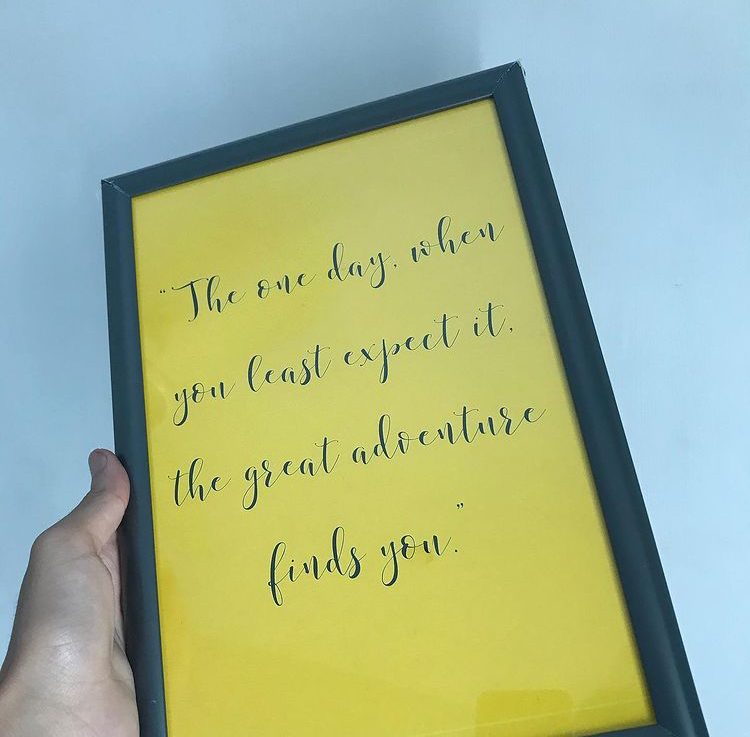 “The one day, when
you least expect it,
the great adventure
finds you.”